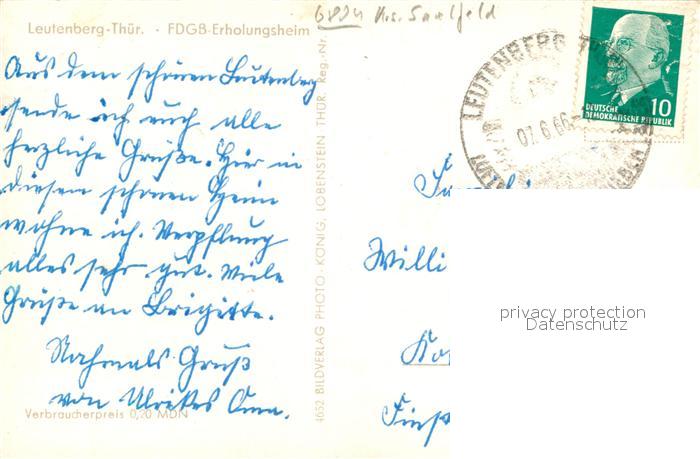 6824 Krs. Saalfeld
Leutenberg-Thür. · FDGB-Erholungsheim
Aus dem schönen Leutenberg
sende ich euch alle
herzliche Grüße. Hier in
diesem schönen Heim
wohne ich. Verpflung
alles sehr gut. Viele
Grüße an Brigitte.
Nochmals Gruß
von Ulrikes Oma.
Verbraucherpreis 0,20 MDN
4652 BILDVERLAG PHOTO-KÖNIG, LOBENSTEIN THÜR. Reg.-Nr.
LEUTENBERG THÜR
07.6.66
DEUTSCHE
DEMOKRATISCHE REPUBLIK
10
Fam
Willi
privacy protection
Datenschutz